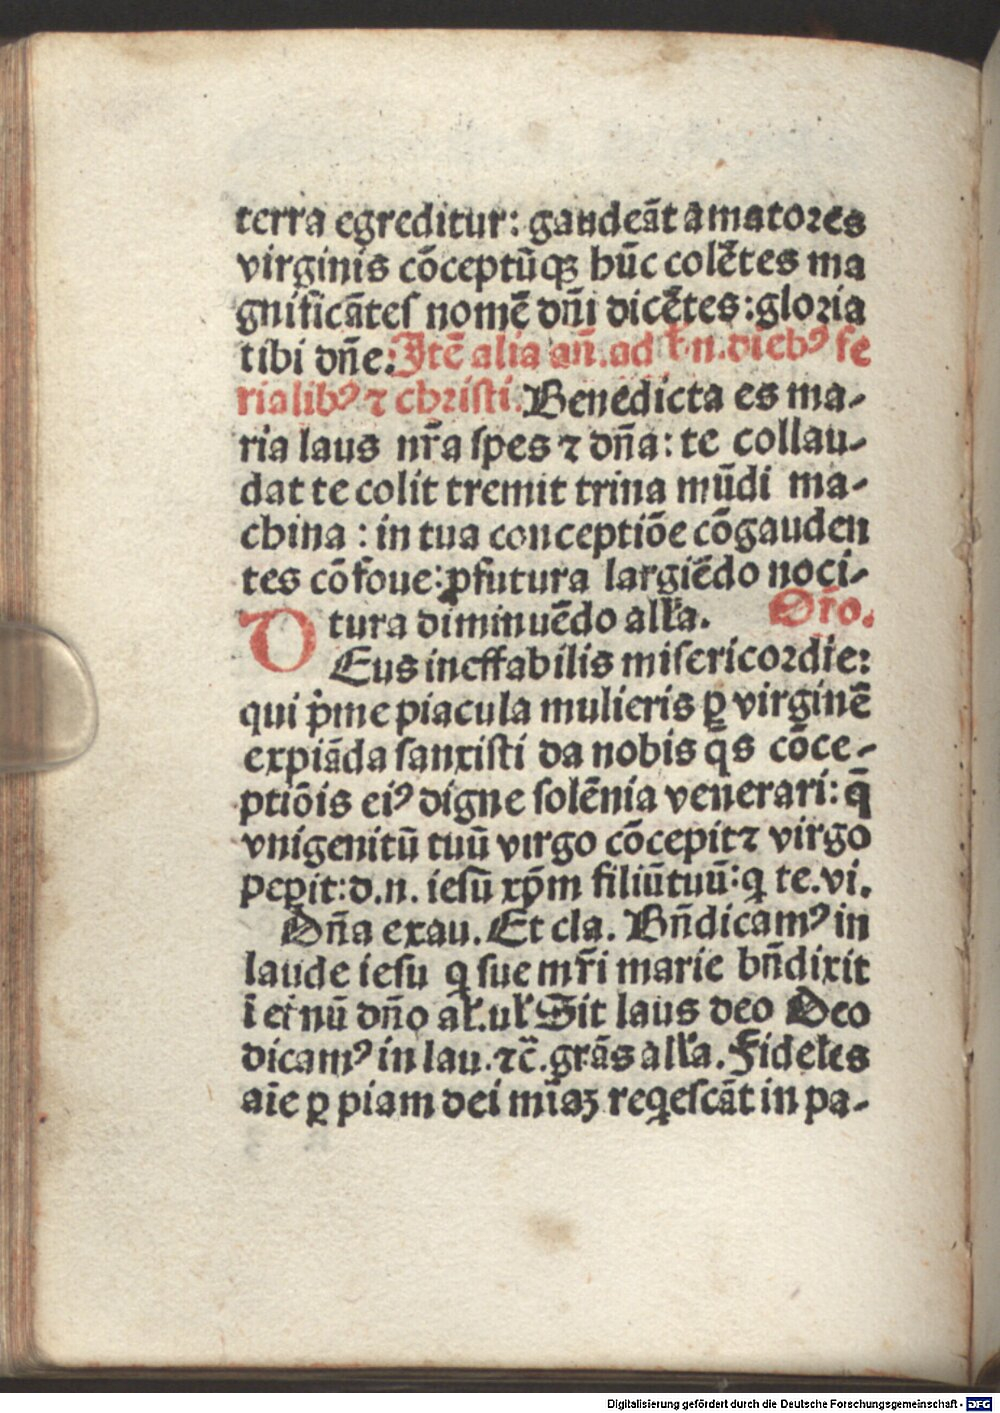 terra egreditur: gaudeāt amatores
virginis cōceptūqꝫ hūc colētes ma
gnificātes nomē dñi dicētes: gloria
tibi dñe: Itē alia añ. ad b.n. diebꝰ fe
rialibꝰ ⁊ christi. Benedicta es ma-
ria laus nr̄a spes ⁊ dña: te collau-
dat te colit tremit trina mūdi ma-
china : in tua conceptiōe cōgauden
tes cōfoue: ꝓfutura largiēdo noci-
tura diminuēdo alľa. Or̄o.
DEus ineffabilis misericordie:
qui p̄me piacula mulieris ꝑ virginē
expiāda sanxisti da nobis q̄s cōce-
ptiōis eiꝰ digne solēnia venerari: q̄
vnigenitū tuū virgo cōcepit ⁊ virgo
peꝑit: d.n. iesū xp̄m filiū tuū: q te.vi.
Dña exau. Et cla. Bñdicamꝰ in
laude iesu q sue mr̄i marie bñdixit
ī et̄nū dño aľ. uľ Sit laus deo Deo
dicamꝰ in lau. ⁊c̄. grās alľa. Fideles
aīe ꝑ piam dei mīaꝫ reqescāt in pa-
Digitalisierung gefördert durch die Deutsche Forschungsgemeinschaft - DFG